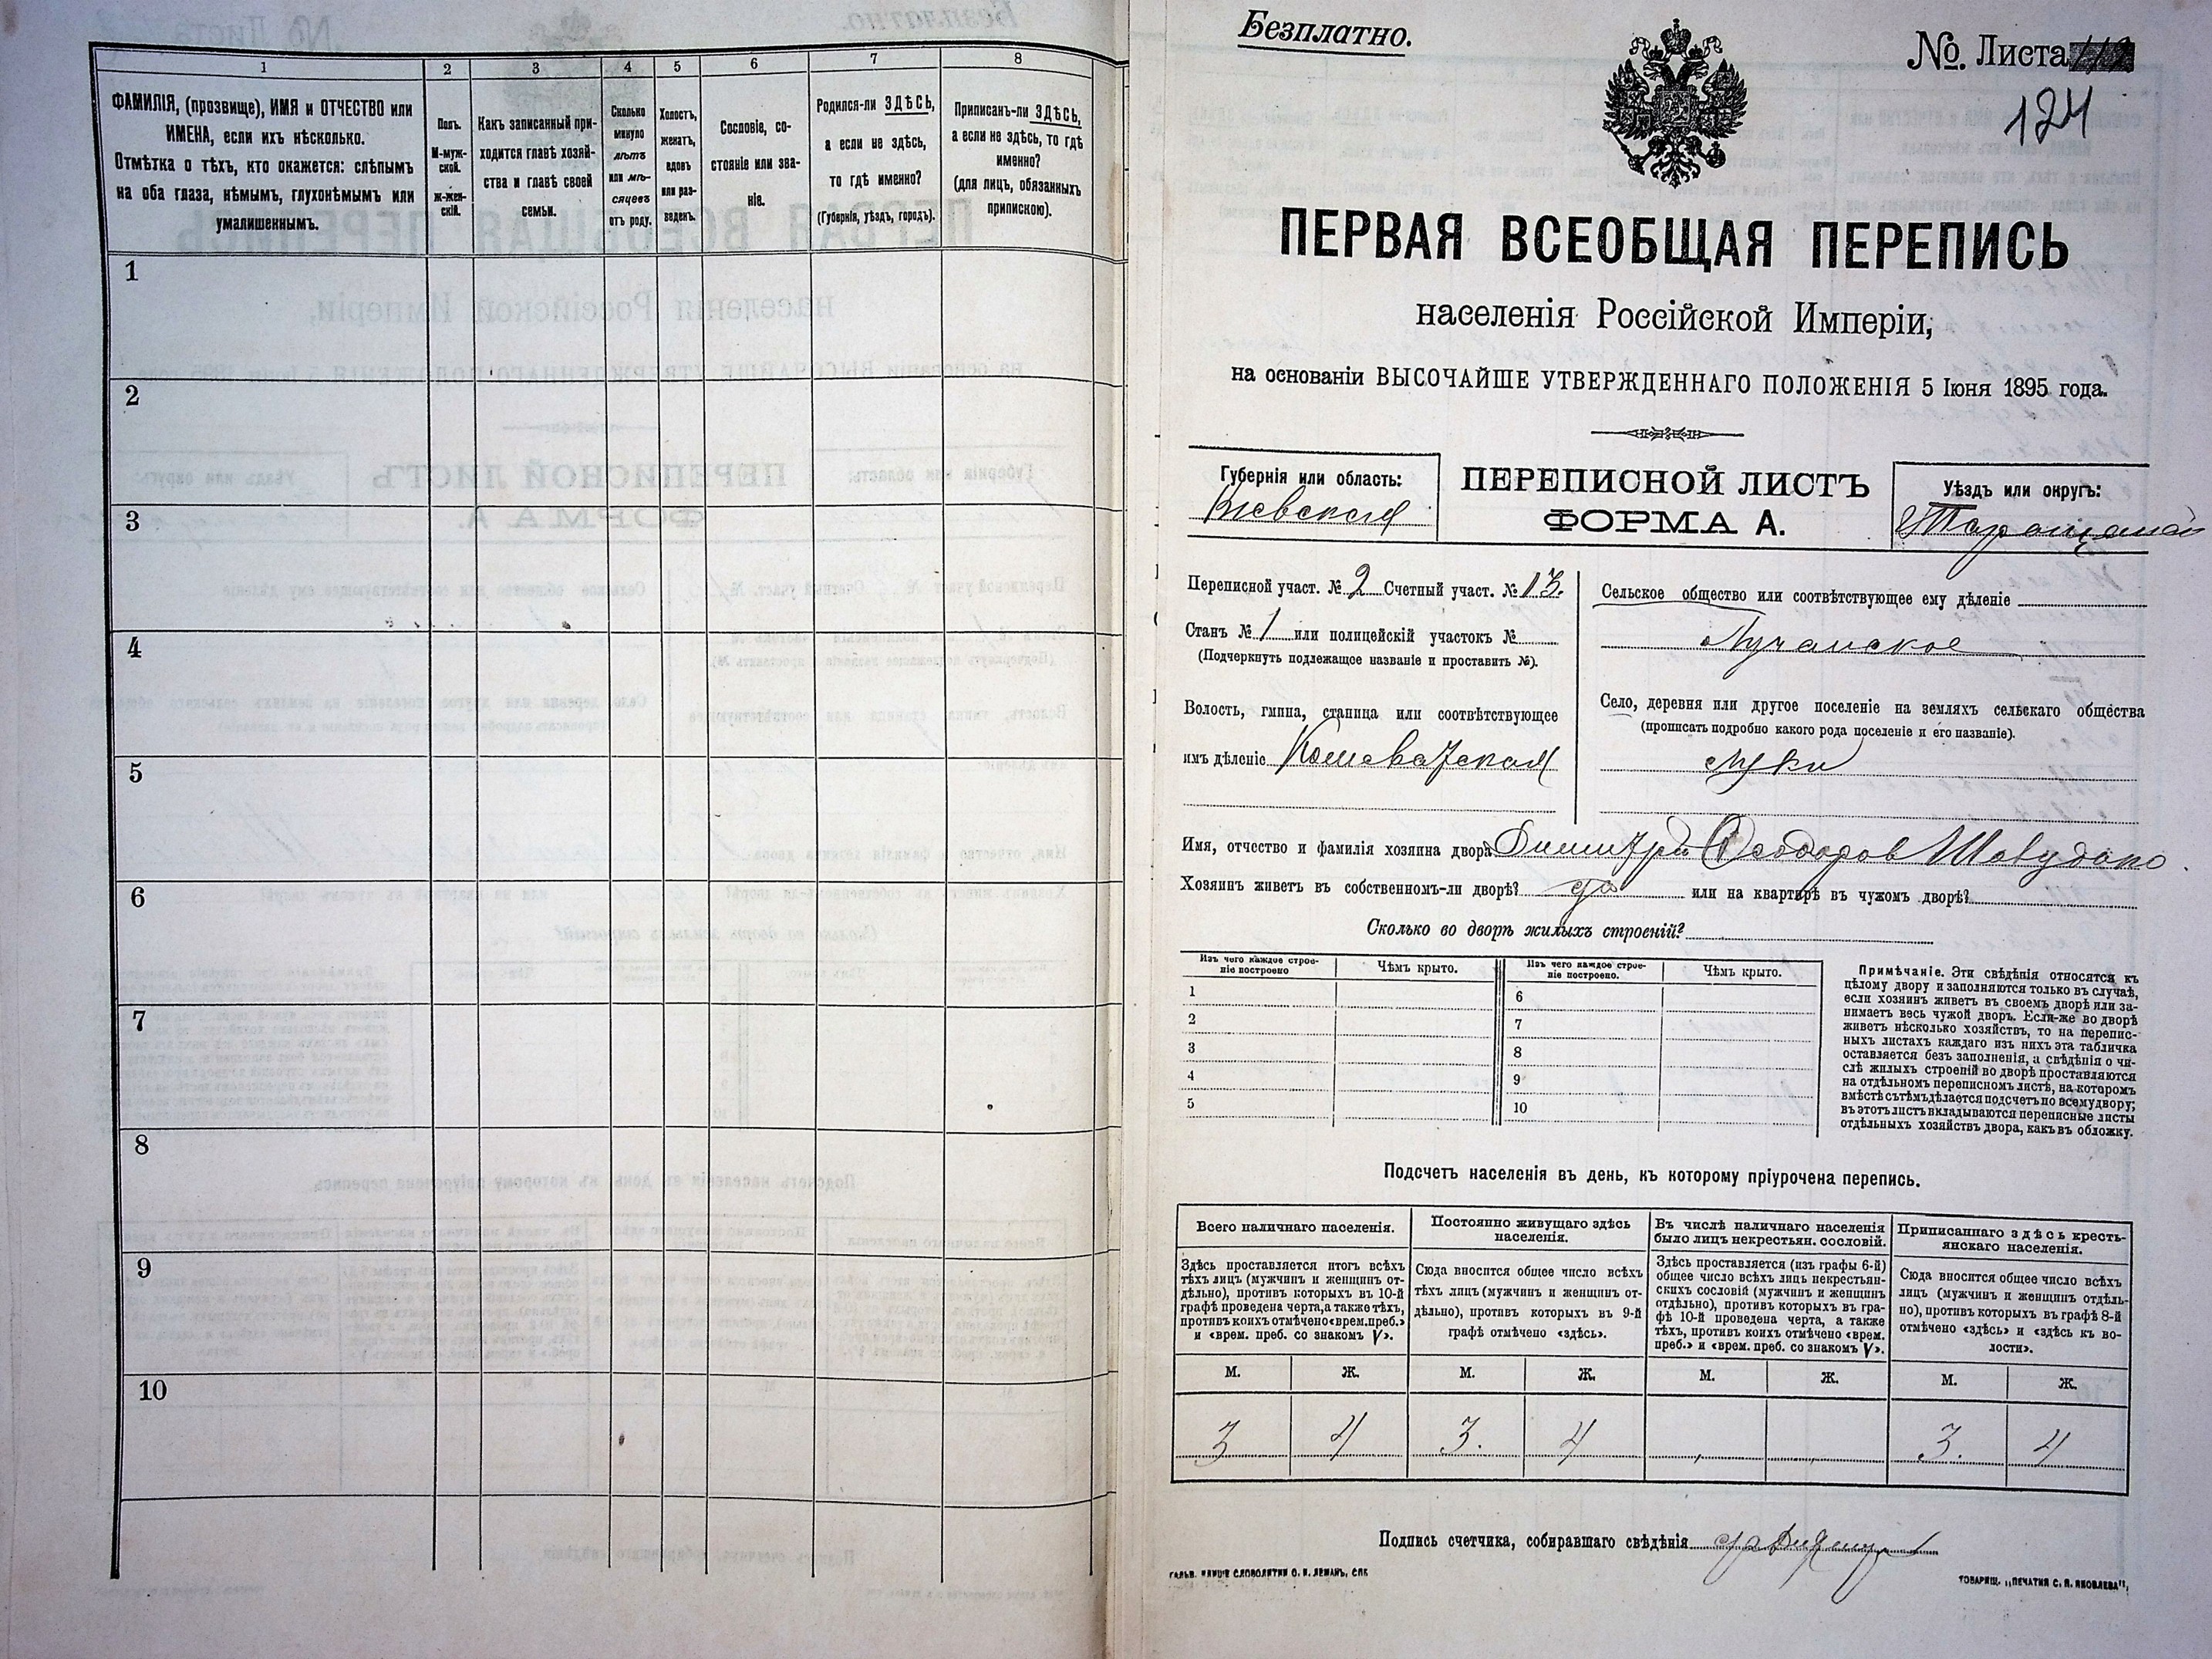 1
2
3
4
5
6
7
8
ФАМИЛІЯ, (прозвище), ИМЯ и ОТЧЕСТВО или
ИМЕНА, если ихъ нѣсколько.
Отмѣтка о тѣхъ, кто окажется: слѣпымъ
на оба глаза, нѣмымъ, глухонѣмымъ или
умалишеннымъ.
Полъ.
М-муж-
ской.
ж-жен-
скій.
Какъ записанный при-
ходится главѣ хозяй-
ства и главѣ своей
семьи.
Сколько
минуло
лѣтъ
или мѣ-
сяцевъ
отъ роду.
Холостъ,
женатъ,
вдовъ
или раз-
веденъ.
Сословіе, со-
стояніе или зва-
ніе.
Родился-ли ЗДѢСЬ,
а если не здѣсь,
то гдѣ именно?
(Губернія, уѣздъ, городъ).
Приписанъ-ли ЗДѢСЬ,
а если не здѣсь, то гдѣ
именно?
(для лицъ, обязанныхъ
припискою).
1
2
3
4
5
6
7
8
9
10
Безплатно.
№ Листа
124
ПЕРВАЯ ВСЕОБЩАЯ ПЕРЕПИСЬ
населенія Россійской Имперіи,
на основаніи ВЫСОЧАЙШЕ УТВЕРЖДЕННАГО ПОЛОЖЕНІЯ 5 Іюня 1895 года.
Губернія или область:
Кіевская
ПЕРЕПИСНОЙ ЛИСТЪ
ФОРМА А.
Уѣздъ или округъ:
Переписной участ. № 2 Счетный участ. № 13.
Станъ № 1 или полицейскій участокъ №
(Подчеркнуть подлежащее названіе и проставить №).
Волость, гмина, станица или соотвѣтствующее
имъ дѣленіе
Сельское общество или соотвѣтствующее ему дѣленіе
Лучанское
Село, деревня или другое поселеніе на земляхъ сельскаго общества
(прописать подробно какого рода поселеніе и его названіе).
Имя, отчество и фамилія хозяина двора Димитрій Ѳеодоров
Хозяинъ живетъ въ собственномъ-ли дворѣ? да или на квартирѣ въ чужомъ дворѣ?
Сколько во дворѣ жилыхъ строеній?
Изъ чего каждое строе-
ніе построено
Чѣмъ крыто.
Изъ чего каждое строе-
ніе построено.
Чѣмъ крыто.
1
2
3
4
5
6
7
8
9
10
Примѣчаніе. Эти свѣдѣнія относятся къ
цѣлому двору и заполняются только въ случаѣ,
если хозяинъ живетъ въ своемъ дворѣ или за-
нимаетъ весь чужой дворъ. Если-же во дворѣ
живетъ нѣсколько хозяйствъ, то на перепис-
ныхъ листахъ каждаго изъ нихъ эта табличка
оставляется безъ заполненія, а свѣдѣнія о чи-
слѣ жилыхъ строеній во дворѣ проставляются
на отдѣльномъ переписномъ листѣ, на которомъ
вмѣстѣ съ тѣмъ дѣлается подсчетъ по всему двору;
въ этотъ листъ вкладываются переписные листы
отдѣльныхъ хозяйствъ двора, какъ въ обложку.
Подсчетъ населенія въ день, къ которому пріурочена перепись.
Всего наличнаго населенія.
Здѣсь проставляется итогъ всѣхъ
тѣхъ лицъ (мужчинъ и женщинъ от-
дѣльно), противъ которыхъ въ 10-й
графѣ проведена черта, а также тѣхъ,
противъ коихъ отмѣчено «врем. преб.»
и «врем. преб. со знакомъ V».
Постоянно живущаго здѣсь
населенія.
Сюда вносится общее число всѣхъ
тѣхъ лицъ (мужчинъ и женщинъ от-
дѣльно), противъ которыхъ въ 9-й
графѣ отмѣчено «здѣсь».
Въ числѣ наличнаго населенія
было лицъ некрестьян. сословій.
Здѣсь проставляется (изъ графы 6-й)
общее число всѣхъ лицъ некрестьян-
скихъ сословій (мужчинъ и женщинъ
отдѣльно), противъ которыхъ въ гра-
фѣ 10-й проведена черта, а также
тѣхъ, противъ коихъ отмѣчено «врем.
преб.» и «врем. преб. со знакомъ V».
Приписаннаго здѣсь кресть-
янскаго населенія.
Сюда вносится общее число всѣхъ
лицъ (мужчинъ и женщинъ отдѣль-
но), противъ которыхъ въ графѣ 8-й
отмѣчено «здѣсь» и «здѣсь къ во-
лости».
М. Ж. М. Ж. М. Ж. М. Ж.
3 4 3. 4 3. 4
Подпись счетчика, собиравшаго свѣдѣнія
ГАЛЬВ. КЛИШЕ СЛОВОЛИТНИ О. И. ЛЕМАНЪ, СПБ
ТОВАРИЩ. „ПЕЧАТНЯ С. П. ЯКОВЛЕВА",